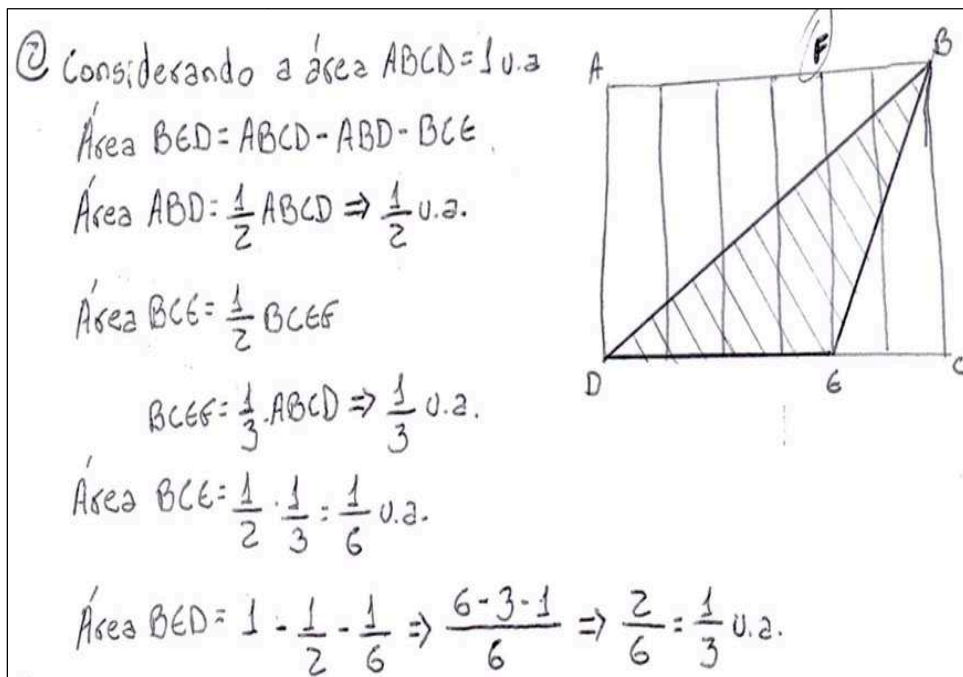 ② Considerando a área ABCD = 1 u.a
Área BED = ABCD - ABD - BCE
Área ABD = 1/2 ABCD ⇒ 1/2 u.a.
Área BCE = 1/2 BCEF
BCEF = 1/3 . ABCD ⇒ 1/3 u.a.
Área BCE = 1/2 . 1/3 = 1/6 u.a.
Área BED = 1 - 1/2 - 1/6 ⇒ (6 - 3 - 1)/6 ⇒ 2/6 = 1/3 u.a.
A F B
D E C